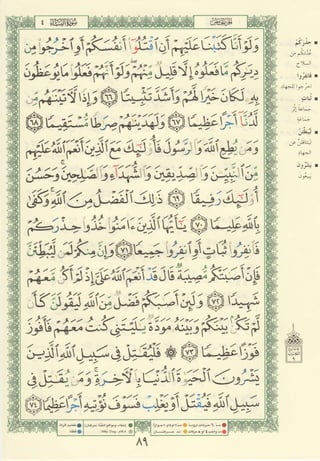 وَلَوْ أَنَّا كَتَبْنَا عَلَيْهِمْ أَنِ ٱقْتُلُوٓا۟ أَنفُسَكُمْ أَوِ ٱخْرُجُوا۟ مِن
دِيَٰرِكُم مَّا فَعَلُوهُ إِلَّا قَلِيلٌ مِّنْهُمْ وَلَوْ أَنَّهُمْ فَعَلُوا۟ مَا يُوعَظُونَ
بِهِۦ لَكَانَ خَيْرًا لَّهُمْ وَأَشَدَّ تَثْبِيتًا ٦٦ وَإِذًا لَّءَاتَيْنَٰهُم
مِّن لَّدُنَّآ أَجْرًا عَظِيمًا ٦٧ وَلَهَدَيْنَٰهُمْ صِرَٰطًا مُّسْتَقِيمًا ٦٨
وَمَن يُطِعِ ٱللَّهَ وَٱلرَّسُولَ فَأُو۟لَٰٓئِكَ مَعَ ٱلَّذِينَ أَنْعَمَ ٱللَّهُ عَلَيْهِم
مِّنَ ٱلنَّبِيِّۦنَ وَٱلصِّدِّيقِينَ وَٱلشُّهَدَآءِ وَٱلصَّٰلِحِينَ وَحَسُنَ
أُو۟لَٰٓئِكَ رَفِيقًا ٦٩ ذَٰلِكَ ٱلْفَضْلُ مِنَ ٱللَّهِ وَكَفَىٰ
بِٱللَّهِ عَلِيمًا ٧٠ يَٰٓأَيُّهَا ٱلَّذِينَ ءَامَنُوا۟ خُذُوا۟ حِذْرَكُمْ
فَٱنفِرُوا۟ ثُبَاتٍ أَوِ ٱنفِرُوا۟ جَمِيعًا ٧١ وَإِنَّ مِنكُمْ لَمَن لَّيُبَطِّئَنَّ
فَإِنْ أَصَٰبَتْكُم مُّصِيبَةٌ قَالَ قَدْ أَنْعَمَ ٱللَّهُ عَلَىَّ إِذْ لَمْ أَكُن مَّعَهُمْ
شَهِيدًا ٧٢ وَلَئِنْ أَصَٰبَكُمْ فَضْلٌ مِّنَ ٱللَّهِ لَيَقُولَنَّ كَأَن
لَّمْ تَكُنۢ بَيْنَكُمْ وَبَيْنَهُۥ مَوَدَّةٌ يَٰلَيْتَنِى كُنتُ مَعَهُمْ فَأَفُوزَ
فَوْزًا عَظِيمًا ٧٣ ۞ فَلْيُقَٰتِلْ فِى سَبِيلِ ٱللَّهِ ٱلَّذِينَ
يَشْرُونَ ٱلْحَيَوٰةَ ٱلدُّنْيَا بِٱلْءَاخِرَةِ وَمَن يُقَٰتِلْ فِى
سَبِيلِ ٱللَّهِ فَيُقْتَلْ أَوْ يَغْلِبْ فَسَوْفَ نُؤْتِيهِ أَجْرًا عَظِيمًا ٧٤
٨٩